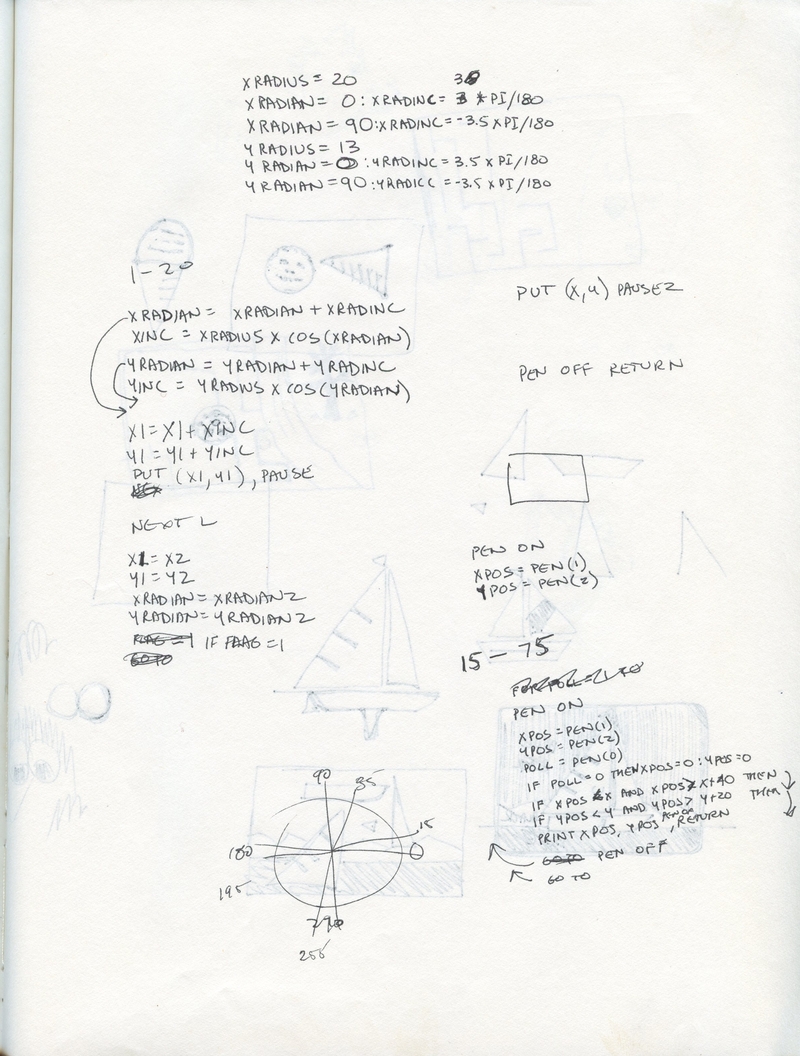 XRADIUS = 20
XRADIAN = 0 : XRADINC = * PI/180
XRADIAN = 90 : XRADINC = -3.5 X PI/180
YRADIUS = 13
YRADIAN = 0 : YRADINC = 3.5 X PI/180
YRADIAN = 90 : YRADICC = -3.5 X PI/180
1-20
XRADIAN = XRADIAN + XRADINC
XINC = XRADIUS X COS(XRADIAN)
YRADIAN = YRADIAN + YRADINC
YINC = YRADIUS X COS(YRADIAN)
X1 = X1 + XINC
Y1 = Y1 + YINC
PUT (X1, Y1), PAUSE
NEXT L
X1 = X2
Y1 = Y2
XRADIAN = XRADIAN2
YRADIAN = YRADIAN2
FLAG = 1 IF FLAG = 1
GOTO
PUT (X, Y) PAUSE2
PEN OFF RETURN
PEN ON
XPOS = PEN(1)
YPOS = PEN(2)
15 - 75
PEN ON
XPOS = PEN(1)
YPOS = PEN(2)
POLL = PEN(0)
IF POLL = 0 THEN XPOS = 0 : YPOS = 0
IF XPOS < X AND XPOS > X + 40 THEN
IF YPOS < Y AND YPOS > Y + 20 THEN
PRINT XPOS, YPOS, PEN OFF RETURN
GOTO PEN OFF
GO TO
90
85
15
180
0
195
290
255